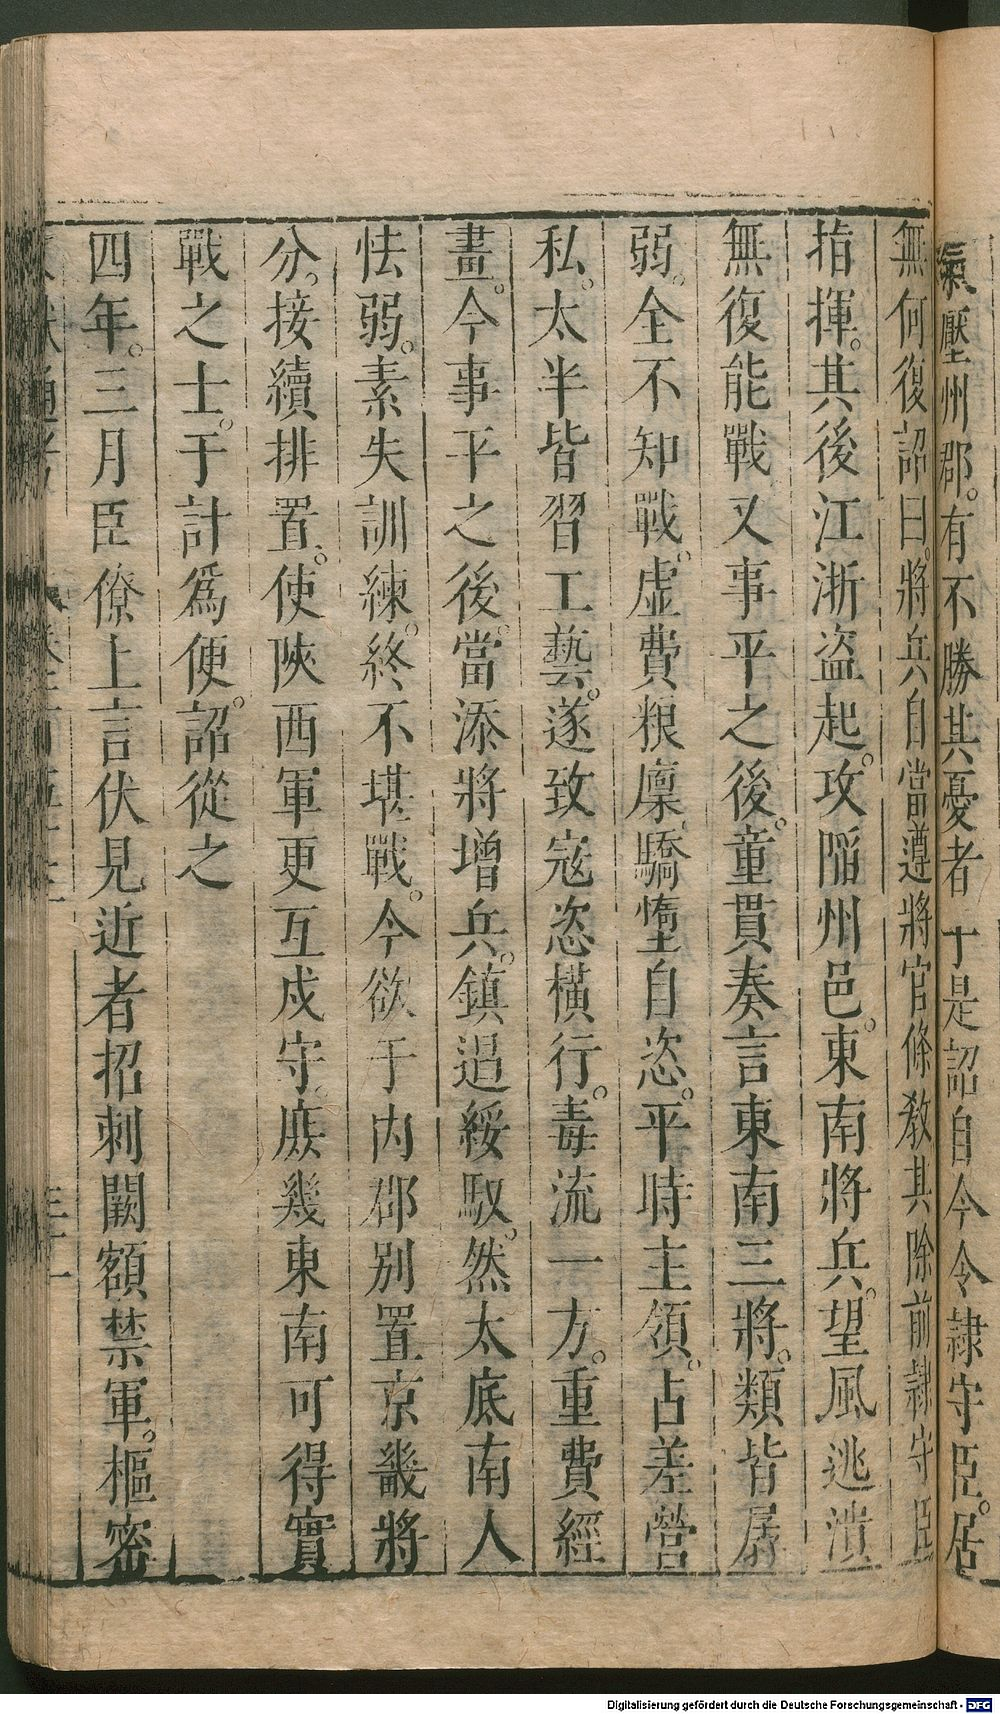 氣壓州郡。有不勝其憂者于是詔自今令隷守臣。居
無何復詔曰。將兵自當遵將官條教其除前隷守臣
指揮。其後江浙盜起。攻陷州邑。東南將兵。望風逃潰
無復能戰又事平之後。童貫奏言東南三將。類皆孱
弱。全不知戰。虛費粮廩。驕惰自恣。平時主領。占差營
私。太半皆習工藝。遂致寇恣橫行。毒流一方。重費經
畫。今事平之後。當添將增兵。鎮遏綏馭。然太底南人
怯弱。素失訓練。終不堪戰。今欲于内郡別置京畿將
分。接續排置。使陜西軍更互戍守。庶幾東南可得實
戰之士。于計爲便。詔從之
四年。三月臣僚上言伏見近者招刺闕額禁軍。樞密
Digitalisierung gefördert durch die Deutsche Forschungsgemeinschaft - DFG